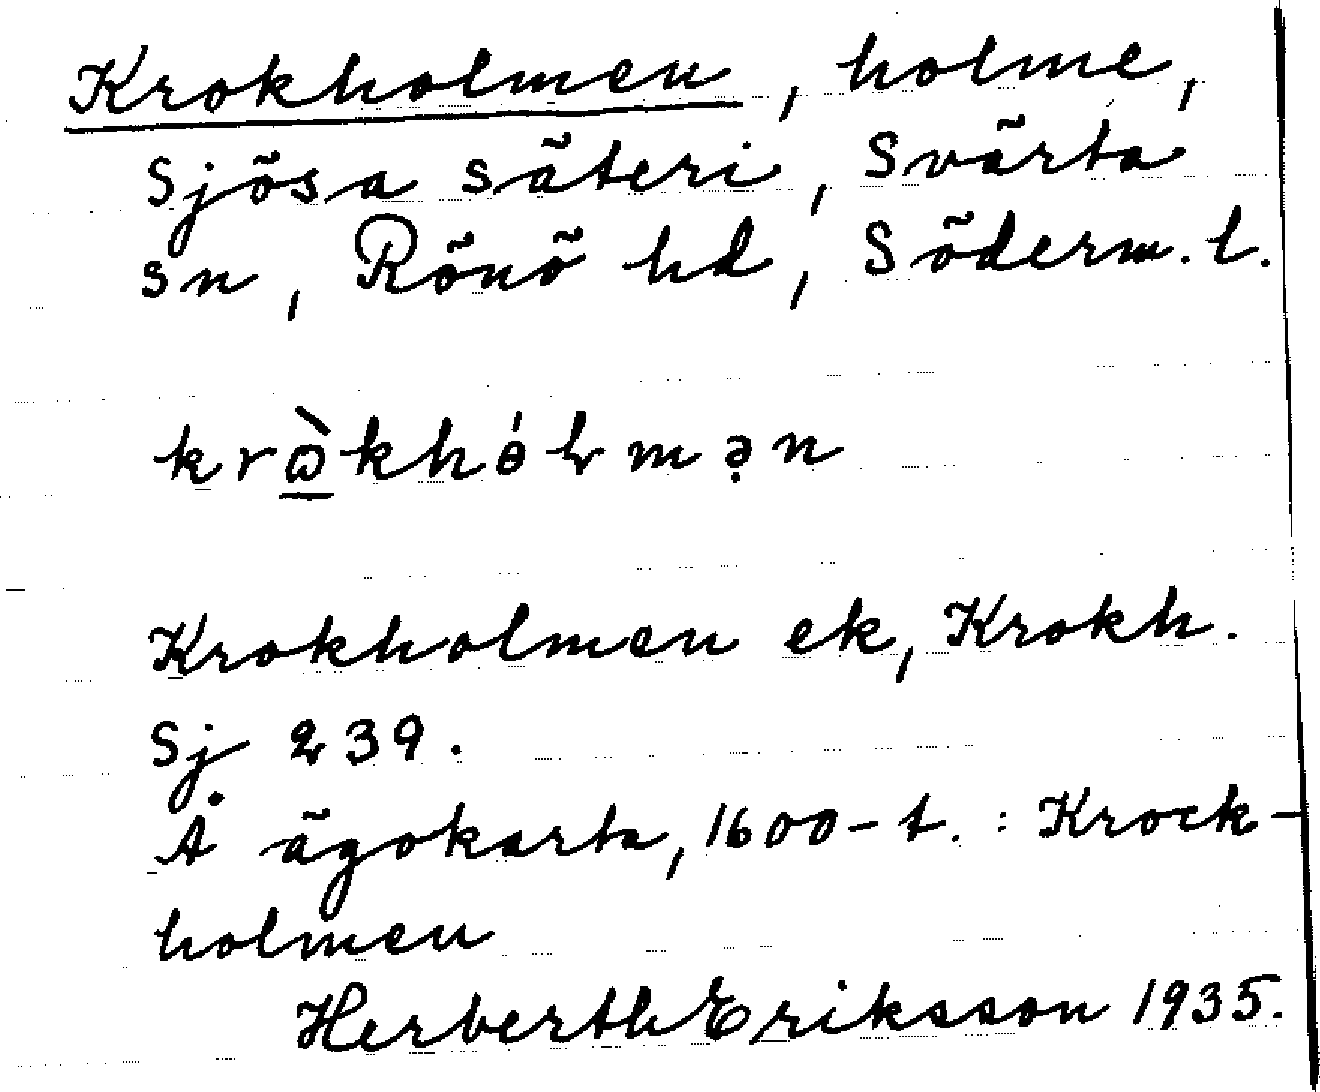 Krokholmen, holme,
Sjösa säteri, Svärta
sn, Rönö hd, Söderm. l.
krὼ̲khɵ́lmə̣n
Krokholmen ek, Krokh.
Sj 239.
Å ägokarta, 1600-t. : Krock-
holmen
Herberth Eriksson 1935.